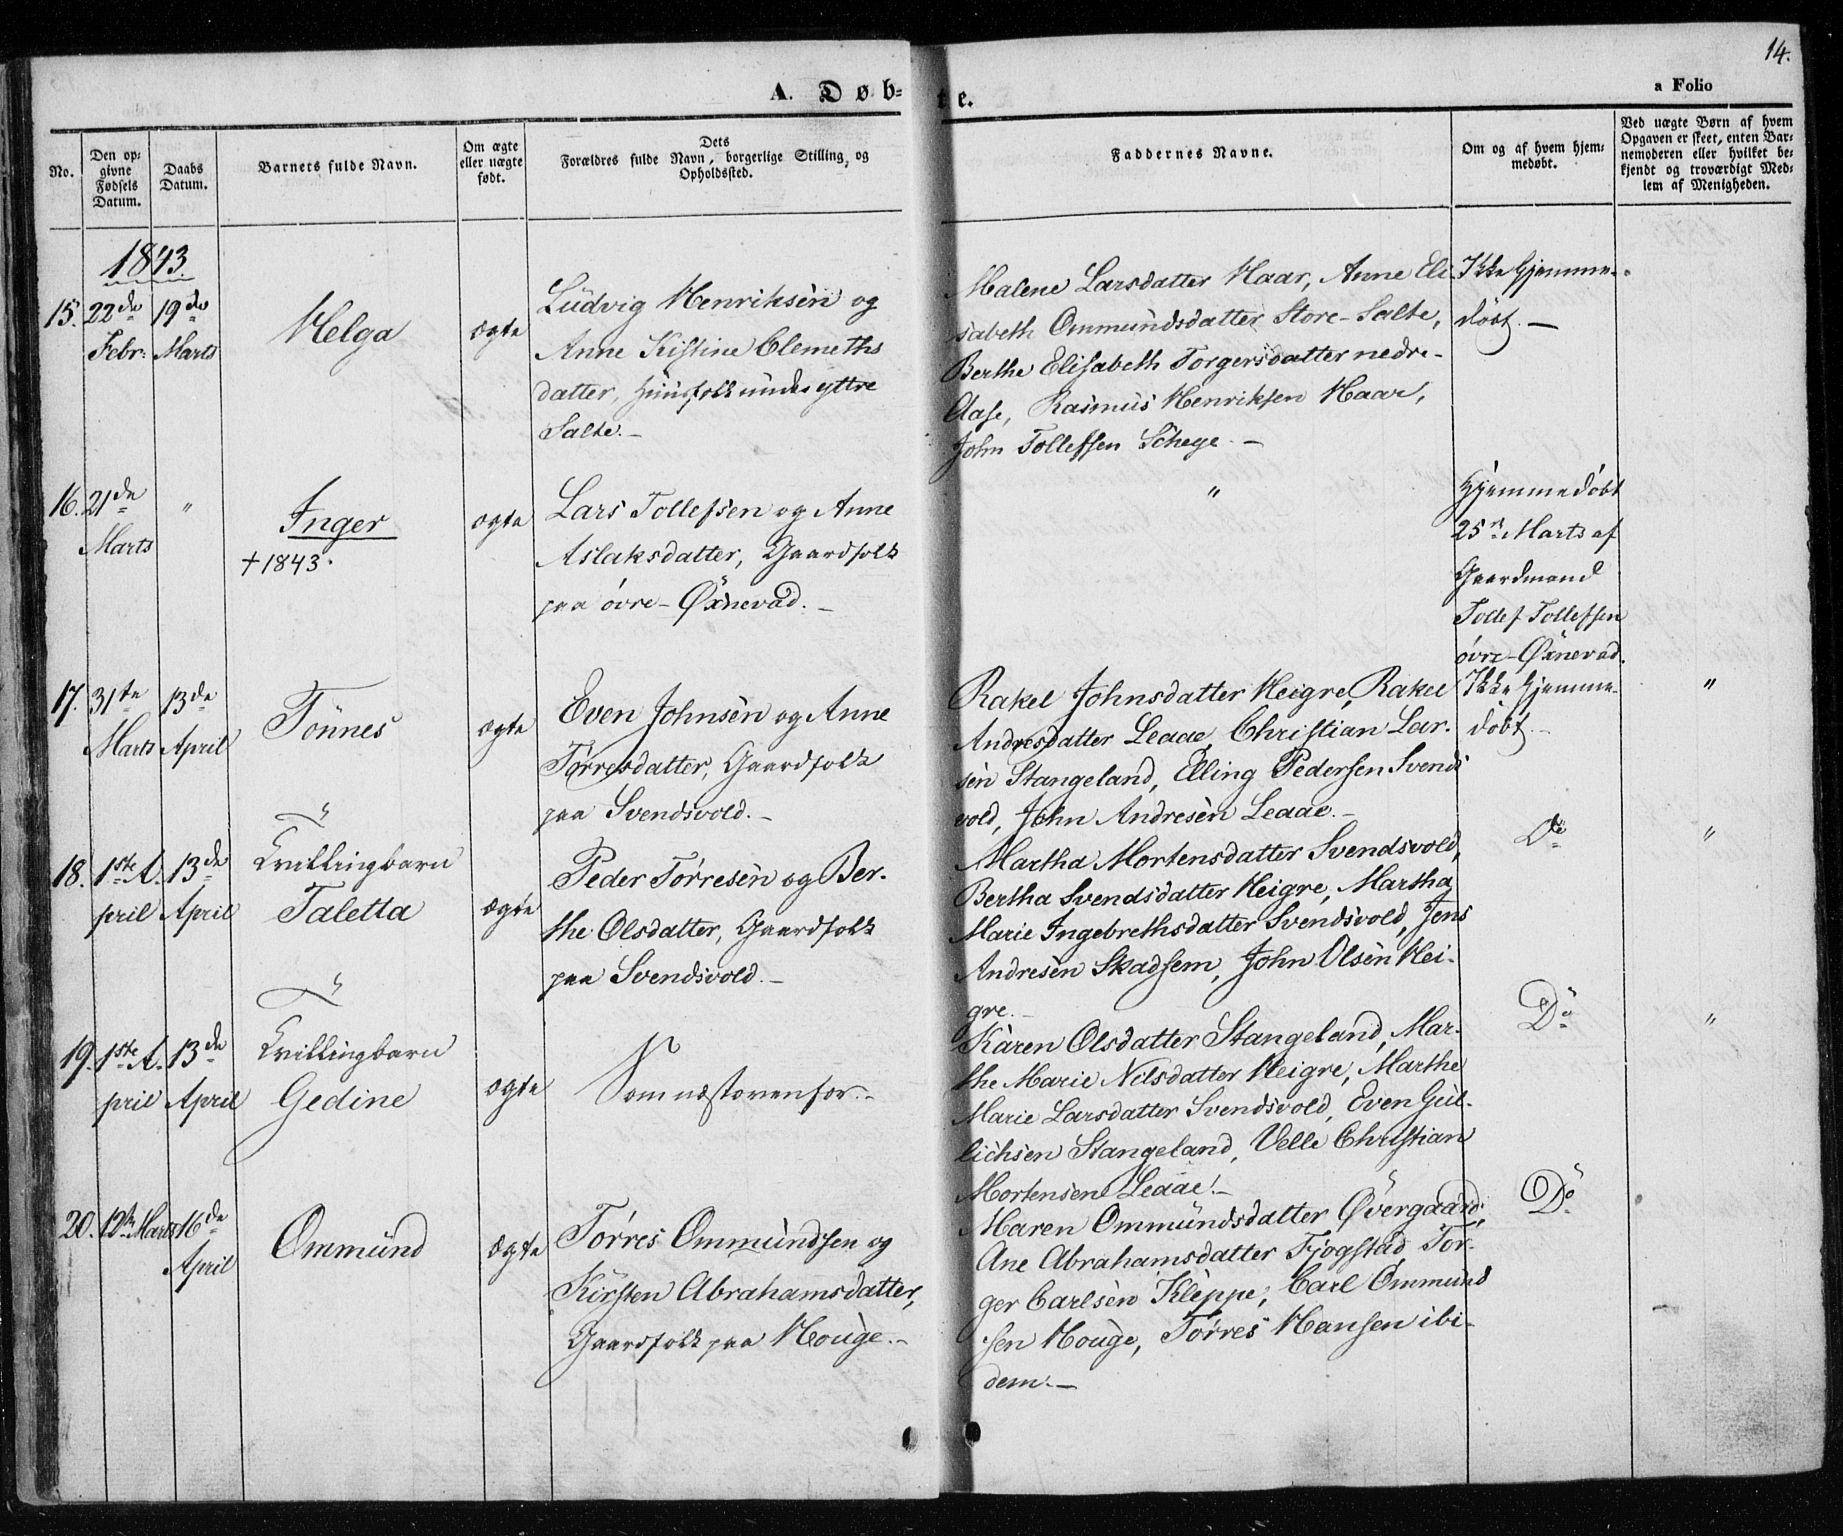 14.
A. Døbte.
a Folio
No.
Den op-
givne
Fødsels
Datum.
Daabs
Datum.
Barnets fulde Navn.
Om ægte
eller uægte
født.
Dets
Forældres fulde Navn, borgerlige Stilling, og
Opholdssted.
Faddernes Navne.
Om og af hvem hjem-
medøbt.
Ved uægte Børn af hvem
Opgaven er skeet, enten Bar-
nemoderen eller hvilket be-
kjendt og troværdigt Med-
lem af Menigheden.
1843.
15.
22de
Febr:
19de
Marts
Helga
ægte
Ludvig Henriksen og
Anne Kistine Clemeths
datter, Huusfolk under yttre
Salte.-
Malene Larsdatter Haar, Anne Eli-
sabeth Ommundsdatter Store-Salte,
Berthe Elisabeth Torgersdatter nedre-
Aase, Rasmus Henriksen Haar,
John Tollefsen Schege.-
Ikke hjemme-
døbt.-
16.
21de
Marts
"
Inger
+1843.
ægte
Lars Tollefsen og Anne
Aslaksdatter, Gaardfolk
paa øvre-Øxnevad.-
"
Hjemmedøbt
25n Marts af
Gaardmand
Tollef Tollefsen
øvre-Øxnevad.
17.
31te
Marts
13de
April
Tönnes
ægte
Even Johnsen og Anne
Tørresdatter, Gaardfolk
paa Svendsvold.-
Rakel Johnsdatter Heigre, Rakel
Andresdatter Leaae, Christian Lar-
sen Stangeland, Elling Pedersen Svends
vold, John Andresen Leaae.-
Ikke hjemme-
døbt.-
"
18.
1ste A-
pril
13de
April
"
Tvillingbarn
Taletta
ægte
Peder Tørresen og Ber-
the Olsdatter, Gaardfolk
paa Svendsvold.-
Martha Mortensdatter Svendsvold,
Bertha Svendsdatter Heigre, Martha
Marie Ingebrethsdatter Svendsvold, Jens
Andresen Skadsem, John Olsen Hei-
gre.-
Do
"
19.
1ste A-
pril
13de
April
"
Tvillingbarn
Gedine
ægte
Som næstovenfor.-
Karen Olsdatter Stangeland, Mar-
the Marie Nilsdatter Heigre, Marthe
Marie Larsdatter Svendsvold, Even Gul-
lichsen Stangeland, Velle Christian
Mortensen Leaae.-
Do
"
20.
12te Marts
16de
April
Ommund
ægte
Tørres Ommundsen og
Kirsten Abrahamsdatter,
Gaardfolk paa Houge.-
Maren Ommundsdatter Øvergaard,
Ane Abrahamsdatter Fjogstad, Tor-
ger Carlsen Kleppe, Carl Ommund
sen Houge, Tørres Hansen ibi-
dem.-
Do